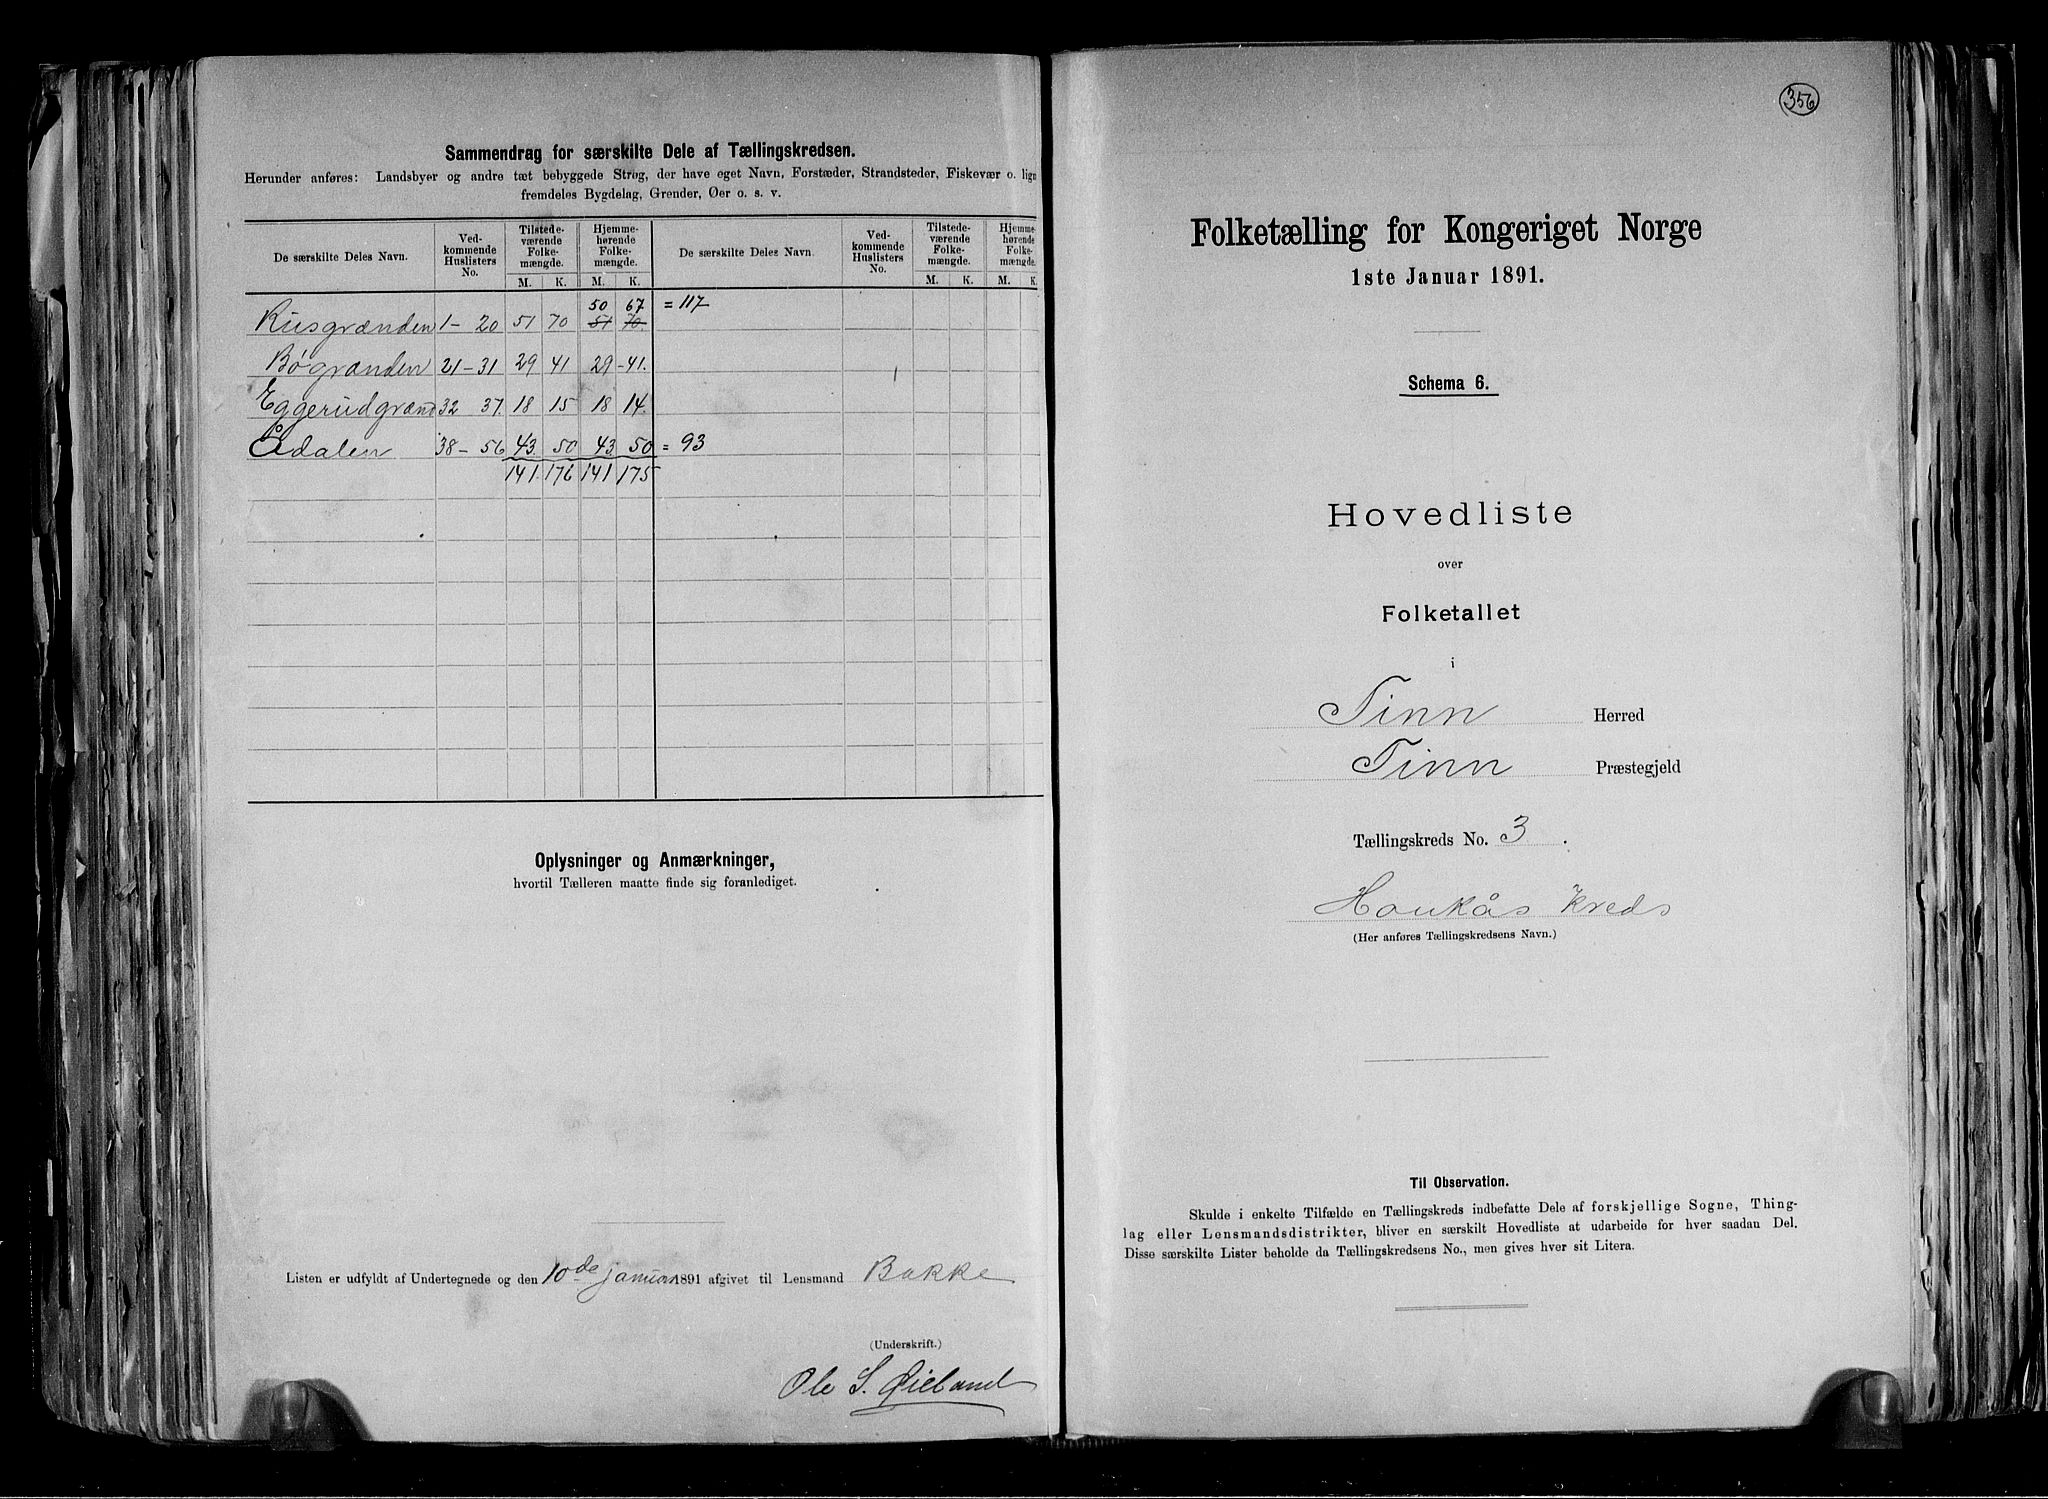 Sammendrag for særskilte Dele af Tællingskredsen.
Herunder anføres: Landsbyer og andre tæt bebyggede Strøg, der have eget Navn, Forstæder, Strandsteder, Fiskevær o. lign
fremdeles Bygdelag, Grender, Øer o. s. v.
De særskilte Deles Navn. Ved-kommende Huslisters No. Tilstede-værende Folke-mængde. Hjemme-hørende Folke-mængde. De særskilte Deles Navn. Ved-kommende Huslisters No. Tilstede-værende Folke-mængde. Hjemme-hørende Folke-mængde.
M. K. M. K. M. K. M. K.
50 67 = 117
Rusgrænden 1 - 20 51 70 51 70.
Bøgrænden 21 - 31 29 41 29 - 41.
Eggerudgrænd 32 37. 18 15 18 14.
Ådalen 38 - 56 43 50 43 50 = 93
141. 176 141 175
Oplysninger og Anmærkninger,
hvortil Tælleren maatte finde sig foranlediget.
Listen er udfyldt af Undertegnede og den 10de januar 1891 afgivet til Lensmand Bakke
(Underskrift.)
Ole S. Øieland
356
Folketælling for Kongeriget Norge
1ste Januar 1891.
Schema 6.
Hovedliste
over
Folketallet
i
Tinn Herred
Tinn Præstegjeld
Tællingskreds No. 3.
Haukås Kreds
(Her anføres Tællingskredsens Navn.)
Til Observation.
Skulde i enkelte Tilfælde en Tællingskreds indbefatte Dele af forskjellige Sogne, Thing-
lag eller Lensmandsdistrikter, bliver en særskilt Hovedliste at udarbeide for hver saadan Del.
Disse særskilte Lister beholde da Tællingskredsens No., men gives hver sit Litera.